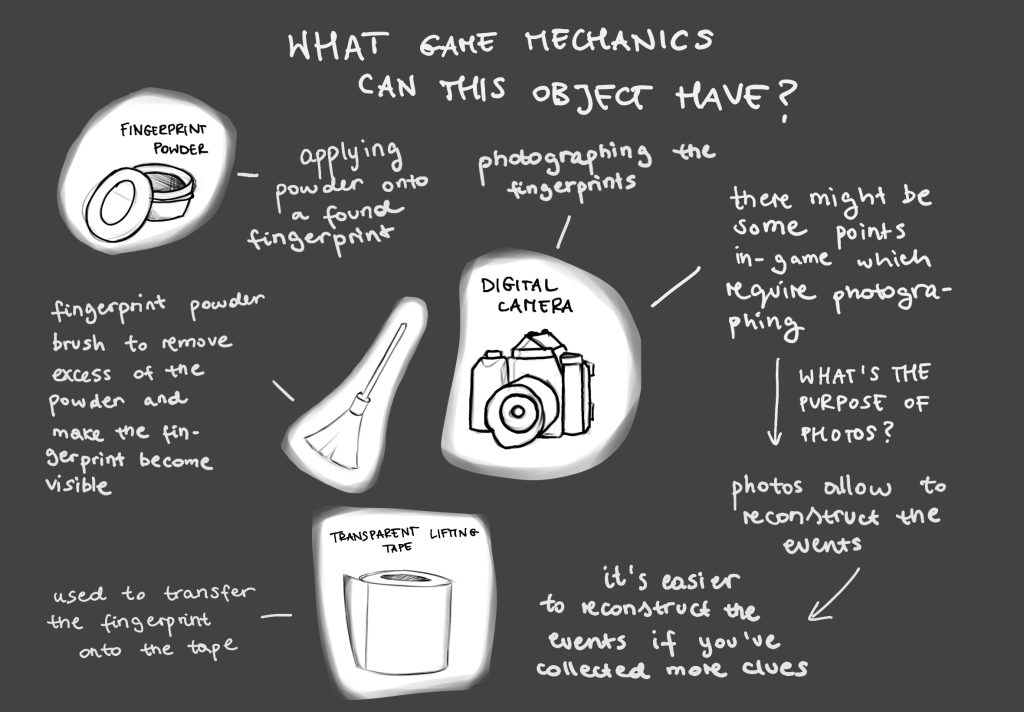 WHAT GAME MECHANICS
CAN THIS OBJECT HAVE?
FINGERPRINT
POWDER
applying
powder onto
a found
fingerprint
photographing the
fingerprints
there might be
some points
in-game which
require photogra-
phing
DIGITAL
CAMERA
fingerprint powder
brush to remove
excess of the
powder and
make the fin-
gerprint become
visible
WHAT'S THE
PURPOSE OF
PHOTOS?
photos allow to
reconstruct the
events
TRANSPARENT LIFTING
TAPE
used to transfer
the fingerprint
onto the tape
it's easier
to reconstruct the
events if you've
collected more clues